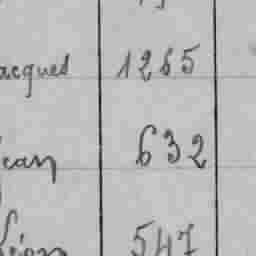 acques 1265
ean 632
Léon 547